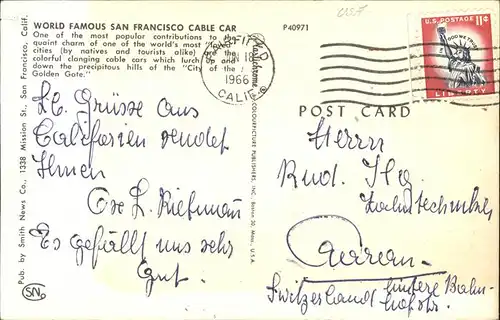 WORLD FAMOUS SAN FRANCISCO CABLE CAR
One of the most popular contributions to the
quaint charm of one of the world's most "loved"
cities (by natives and tourists alike) are the
colorful clanging cable cars which lurch up and
down the precipitous hills of the "City of the
Golden Gate."
P40971
USA
18
1966
CALIF.
U.S. POSTAGE 11¢
IN GOD WE TRUST
LIBERTY
POST CARD
Plastichrome
COLOURPICTURE PUBLISHERS, INC. Boston 30, Mass., U.S.A.
Pub. by Smith News Co., 1338 Mission St., San Francisco, Calif.
SN
Lb. Grüsse aus
Californien sendet
Ihnen
L. Riefmann
Es gefällt uns sehr
gut.
Herrn
Rud. Ilg
Zahntechniker
Aarau
hintere Bahn-
hofstr.
Switzerland